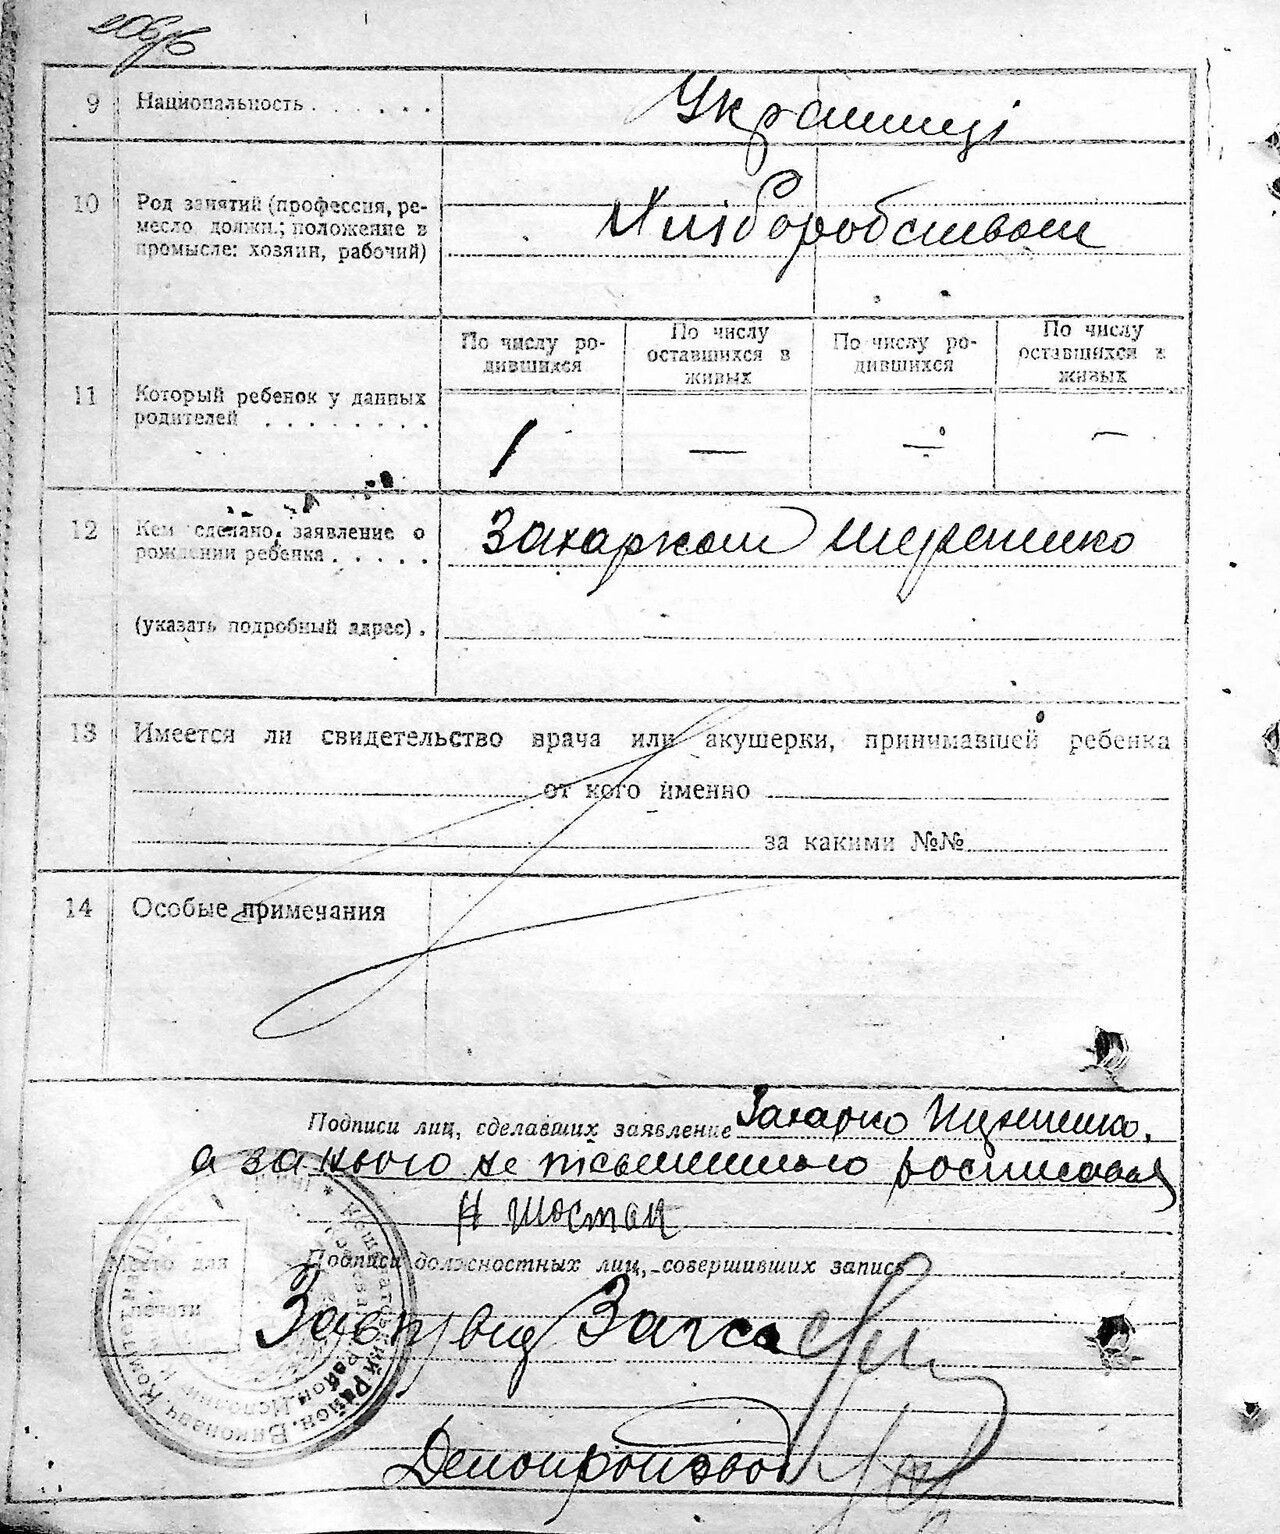 9 Национальность . . . . . . Українці
10 Род занятий (профессия, ре-
месло, должн.; положение в
промысле: хозяин, рабочий)
Хліборобством
11 Который ребенок у данных
родителей . . . . . . . .
По числу ро-
дившихся
По числу
оставшихся в
живых
По числу ро-
дившихся
По числу
оставшихся в
живых
1 — — —
12 Кем сделано заявление о
рождении ребенка . . . . .
Захарком
(указать подробный адрес) .
13 Имеется ли свидетельство врача или акушерки, принимавшей ребенка
от кого именно
за какими №№
14 Особые примечания
Подписи лиц, сделавших заявление Захарко
а за нього не письменного росписовався
Н Шостак
Подписи должностных лиц, совершивших запись
Место для
печати
Заврайвид Загса
Діловод